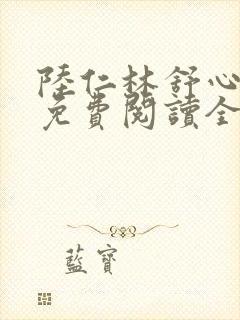 陸仁林舒心
免費閱讀全
藍寶